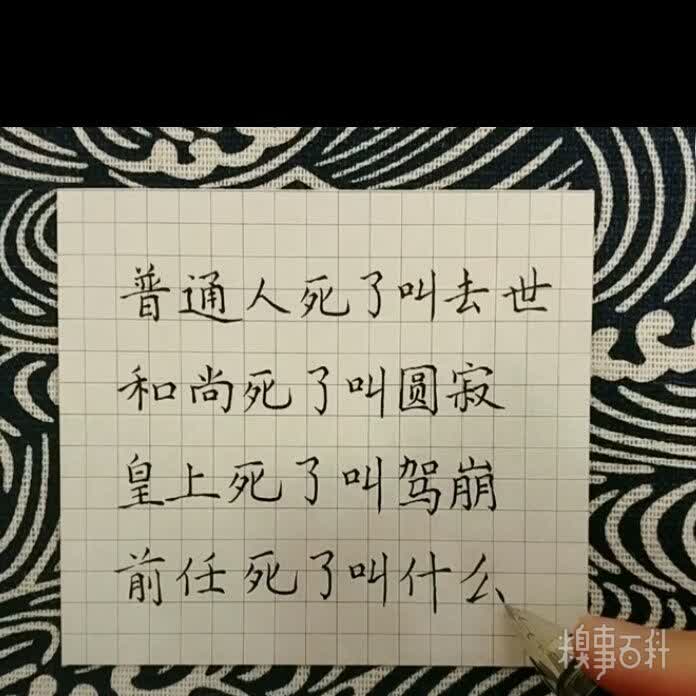 普通人死了叫去世
和尚死了叫圆寂
皇上死了叫驾崩
前任死了叫什么
糗事百科